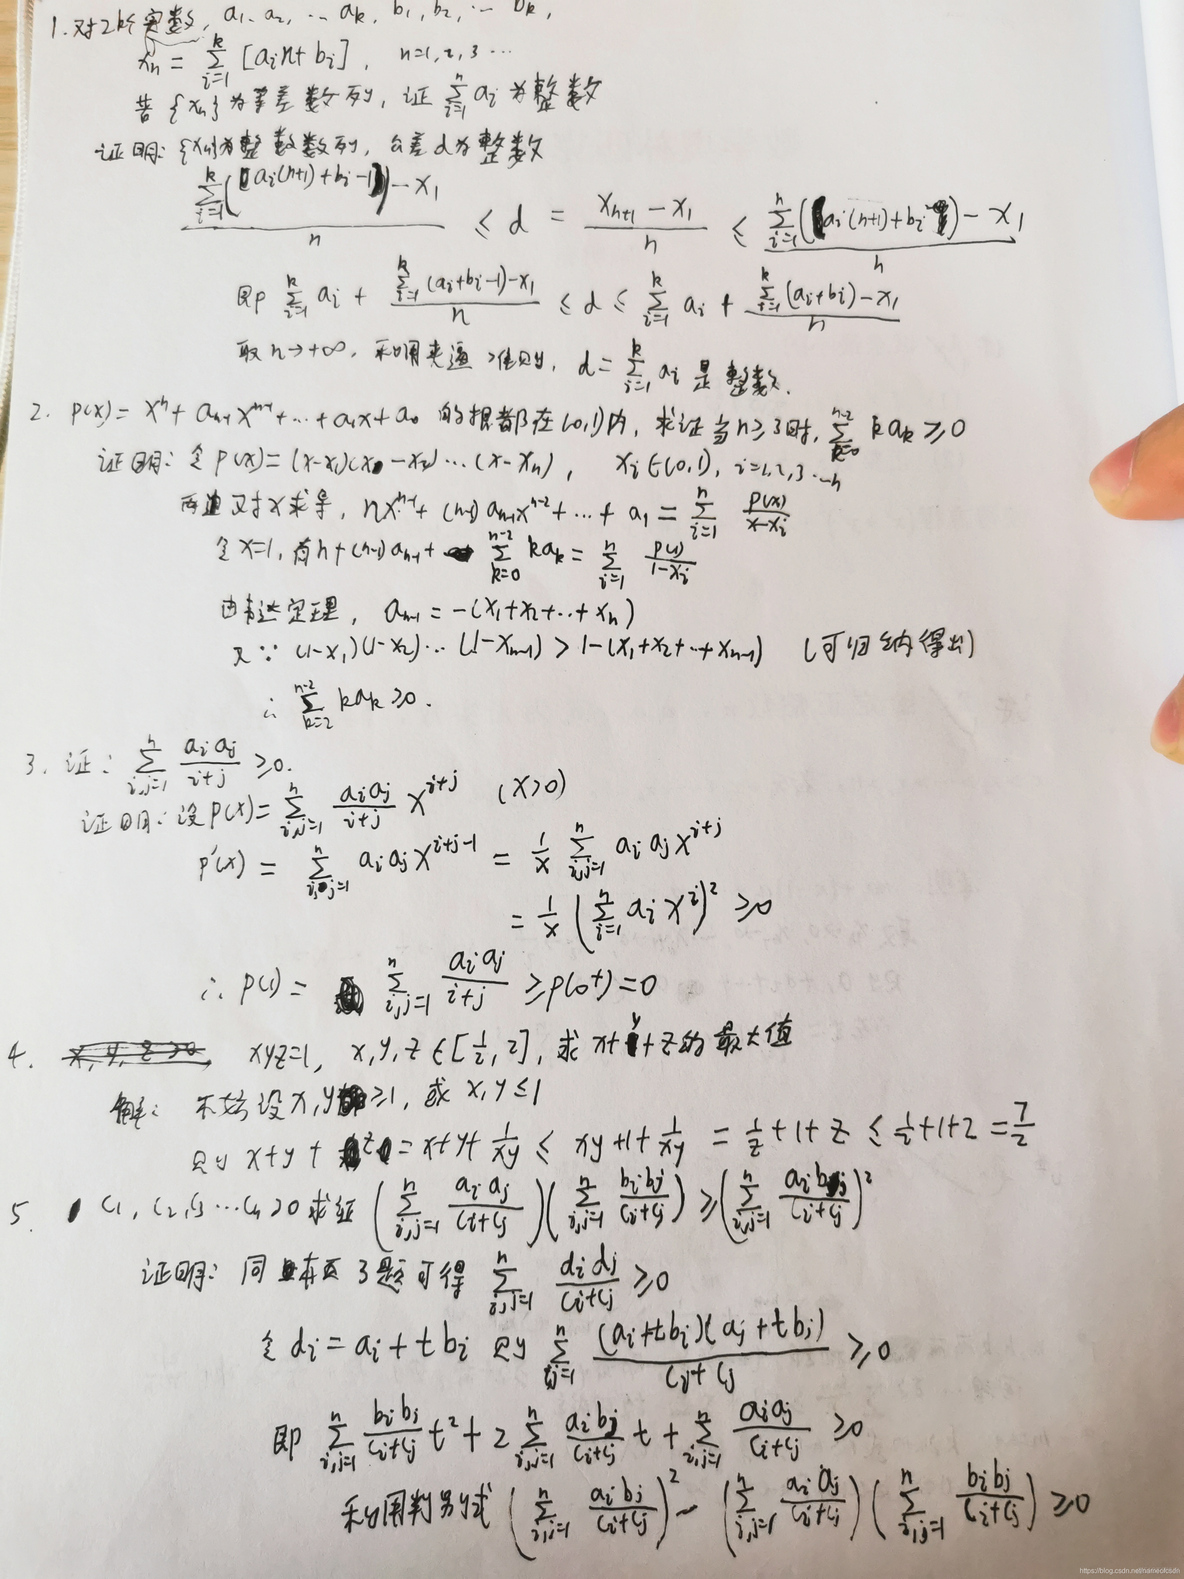 1. 对2k个实数, a₁, a₂, … aₖ, b₁, b₂, … bₖ,
xₙ = Σ_{i=1}^{k} [aᵢn + bᵢ], n=1,2,3…
若{xₙ}为等差数列, 证 Σ_{i=1}^{n} aᵢ为整数
证明: {xₙ}为整数数列, 公差d为整数
(Σ_{i=1}^{k}(aᵢ(n+1)+bᵢ-1) - x₁)/n ≤ d = (xₙ₊₁ - x₁)/n ≤ (Σ_{i=1}^{n}(aᵢ(n+1)+bᵢ) - x₁)/n
即 Σ_{i=1}^{k} aᵢ + (Σ_{i=1}^{k}(aᵢ+bᵢ-1)-x₁)/n ≤ d ≤ Σ_{i=1}^{k} aᵢ + (Σ_{i=1}^{k}(aᵢ+bᵢ)-x₁)/n
取 n→+∞, 利用夹逼准则, d = Σ_{i=1}^{k} aᵢ 是整数.
2. p(x) = xⁿ + aₙ₋₁xⁿ⁻¹ + … + a₁x + a₀ 的根都在(0,1)内, 求证当n≥3时, Σ_{k=0}^{n-2} kaₖ ≥ 0
证明: 令 p(x) = (x-x₁)(x-x₂)…(x-xₙ), xᵢ∈(0,1), i=1,2,3…n
两边对x求导, nxⁿ⁻¹ + (n-1)aₙ₋₁xⁿ⁻² + … + a₁ = Σ_{i=1}^{n} p(x)/(x-xᵢ)
令x=1, 有 n+(n-1)aₙ₋₁ + Σ_{k=0}^{n-2} kaₖ = Σ_{i=1}^{n} p(1)/(1-xᵢ)
由韦达定理, aₙ₋₁ = -(x₁+x₂+…+xₙ)
又∵ (1-x₁)(1-x₂)…(1-xₙ₋₁) > 1-(x₁+x₂+…+xₙ₋₁) (可归纳得出)
∴ Σ_{k=2}^{n-2} kaₖ ≥ 0.
3. 证: Σ_{i,j=1}^{n} aᵢaⱼ/(i+j) ≥ 0.
证明: 设p(x) = Σ_{i,j=1}^{n} aᵢaⱼ/(i+j) x^{i+j} (x>0)
p'(x) = Σ_{i,j=1}^{n} aᵢaⱼx^{i+j-1} = 1/x Σ_{i,j=1}^{n} aᵢaⱼx^{i+j}
= 1/x (Σ_{i=1}^{n} aᵢxⁱ)² ≥ 0
∴ p(1) = Σ_{i,j=1}^{n} aᵢaⱼ/(i+j) ≥ p(0⁺) = 0
4. xyz=1, x,y,z∈[1/2, 2], 求 x+y+z的最大值
解: 不妨设x,y≥1, 或 x,y≤1
则 x+y+z = x+y+1/xy ≤ xy+1+1/xy = 1/z+1+z ≤ 1/2+1+2 = 7/2
5. c₁, c₂, c₃ … cₙ>0 求证 (Σ_{i,j=1}^{n} aᵢaⱼ/(cᵢ+cⱼ))(Σ_{i,j=1}^{n} bᵢbⱼ/(cᵢ+cⱼ)) ≥ (Σ_{i,j=1}^{n} aᵢbⱼ/(cᵢ+cⱼ))²
证明: 同本页3题可得 Σ_{i,j=1}^{n} dᵢdⱼ/(cᵢ+cⱼ) ≥ 0
令 dᵢ = aᵢ+tbᵢ 则 Σ_{i,j=1}^{n} (aᵢ+tbᵢ)(aⱼ+tbⱼ)/(cᵢ+cⱼ) ≥ 0
即 Σ_{i,j=1}^{n} bᵢbⱼ/(cᵢ+cⱼ) t² + 2Σ_{i,j=1}^{n} aᵢbⱼ/(cᵢ+cⱼ) t + Σ_{i,j=1}^{n} aᵢaⱼ/(cᵢ+cⱼ) ≥ 0
利用判别式 (Σ_{i,j=1}^{n} aᵢbⱼ/(cᵢ+cⱼ))² - (Σ_{i,j=1}^{n} aᵢaⱼ/(cᵢ+cⱼ))(Σ_{i,j=1}^{n} bᵢbⱼ/(cᵢ+cⱼ)) ≥ 0
https://blog.csdn.net/nameofcsdn